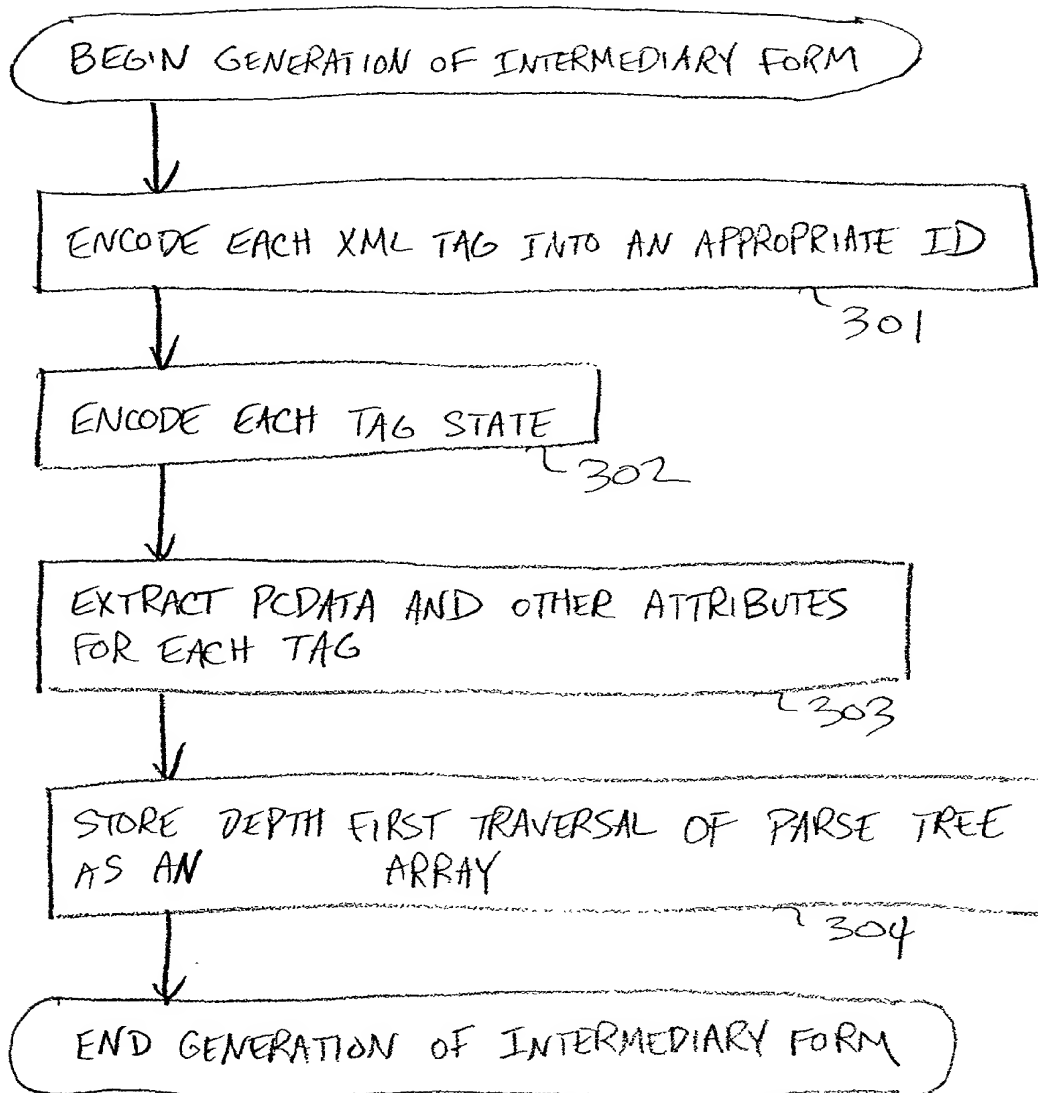 BEGIN GENERATION OF INTERMEDIARY FORM
ENCODE EACH XML TAG INTO AN APPROPRIATE ID
301
ENCODE EACH TAG STATE
302
EXTRACT PCDATA AND OTHER ATTRIBUTES
FOR EACH TAG
303
STORE DEPTH FIRST TRAVERSAL OF PARSE TREE
AS AN ARRAY
304
END GENERATION OF INTERMEDIARY FORM